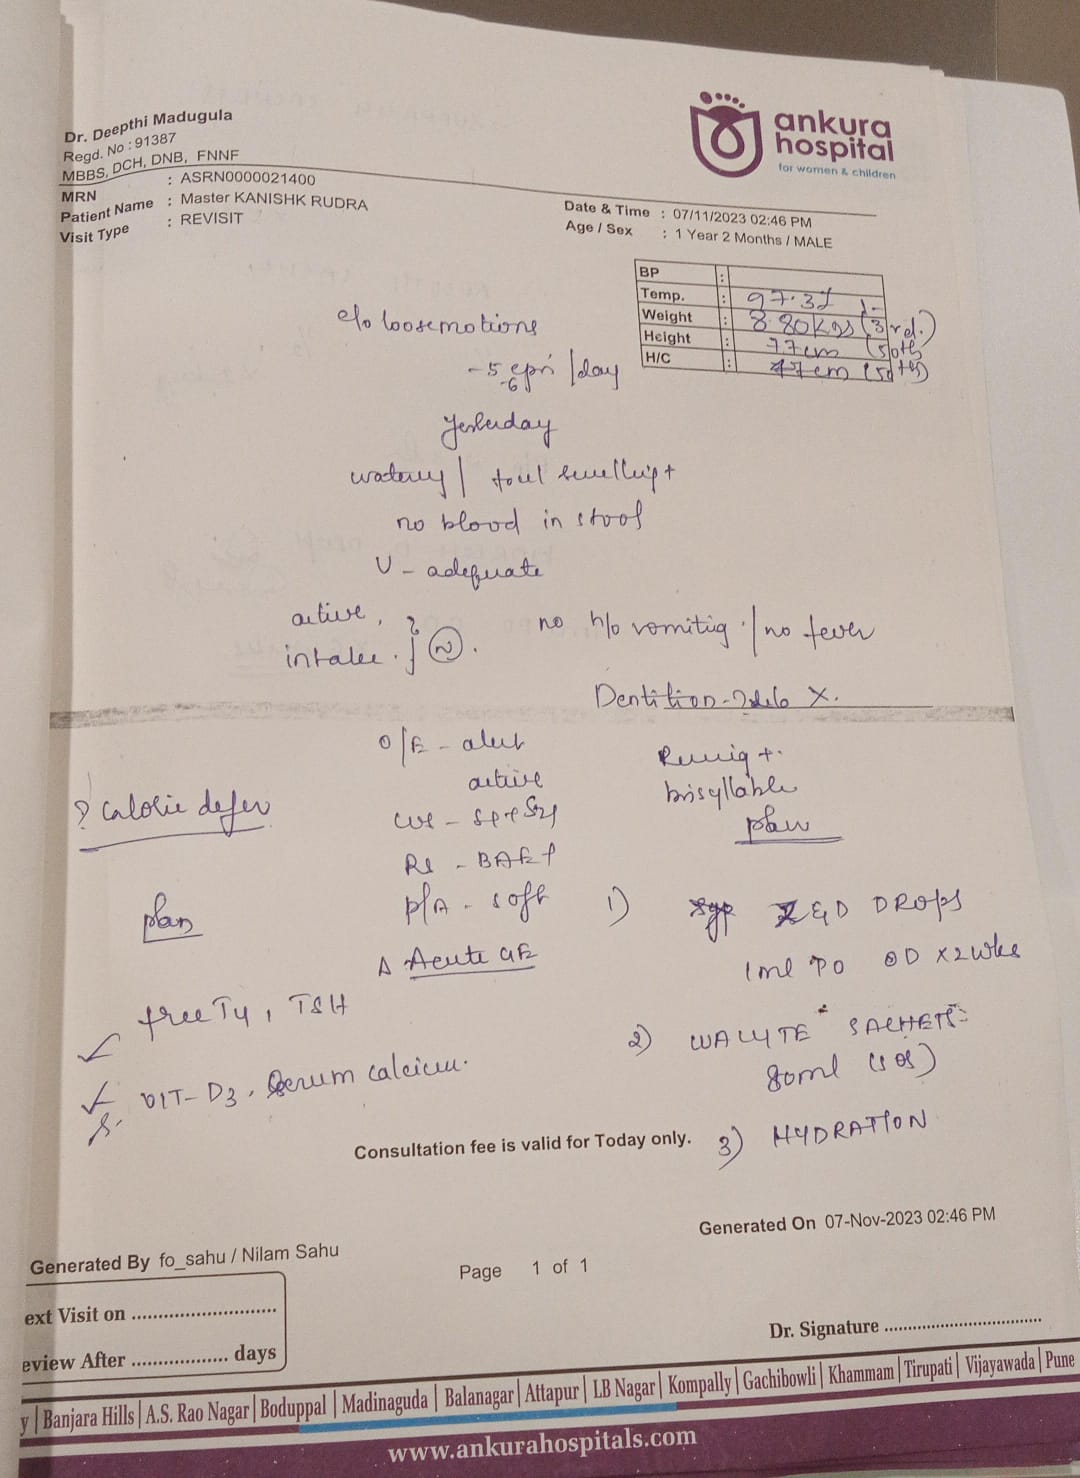 Dr. Deepthi Madugula
Regd. No : 91387
MBBS, DCH, DNB, FNNF
MRN : ASRN0000021400
Patient Name : Master KANISHK RUDRA
Visit Type : REVISIT
ankura
hospital
for women & children
Date & Time : 07/11/2023 02:46 PM
Age / Sex : 1 Year 2 Months / MALE
BP :
Temp. : 97.3
Weight : 8.80kgs (3rd.)
Height : 77cm (50th
H/C : 47cm (50th)
c/o loosemotions
-5-6 epi /day
yesterday
watery / foul smelling +
no blood in stool
U - adequate
active,
intake. } N.
no h/o vomiting / no fever
Dentition - X.
O/E - alert
active
CVS - S1+S2+
RS - BAE+
P/A - soft
Δ Acute GE
Running +.
bisyllable
? calorie
plan
free T4, TSH
VIT-D3, Serum calcium.
plan
1) Z&D DROPS
1ml PO OD x 2wks
2) WALYTE SACHETS
80ml (SOS)
3) HYDRATION
Consultation fee is valid for Today only.
Generated On 07-Nov-2023 02:46 PM
Generated By fo_sahu / Nilam Sahu
Page 1 of 1
ext Visit on ..........................
eview After .................. days
Dr. Signature ..................................
y | Banjara Hills | A.S. Rao Nagar | Boduppal | Madinaguda | Balanagar | Attapur | LB Nagar | Kompally | Gachibowli | Khammam | Tirupati | Vijayawada | Pune
www.ankurahospitals.com